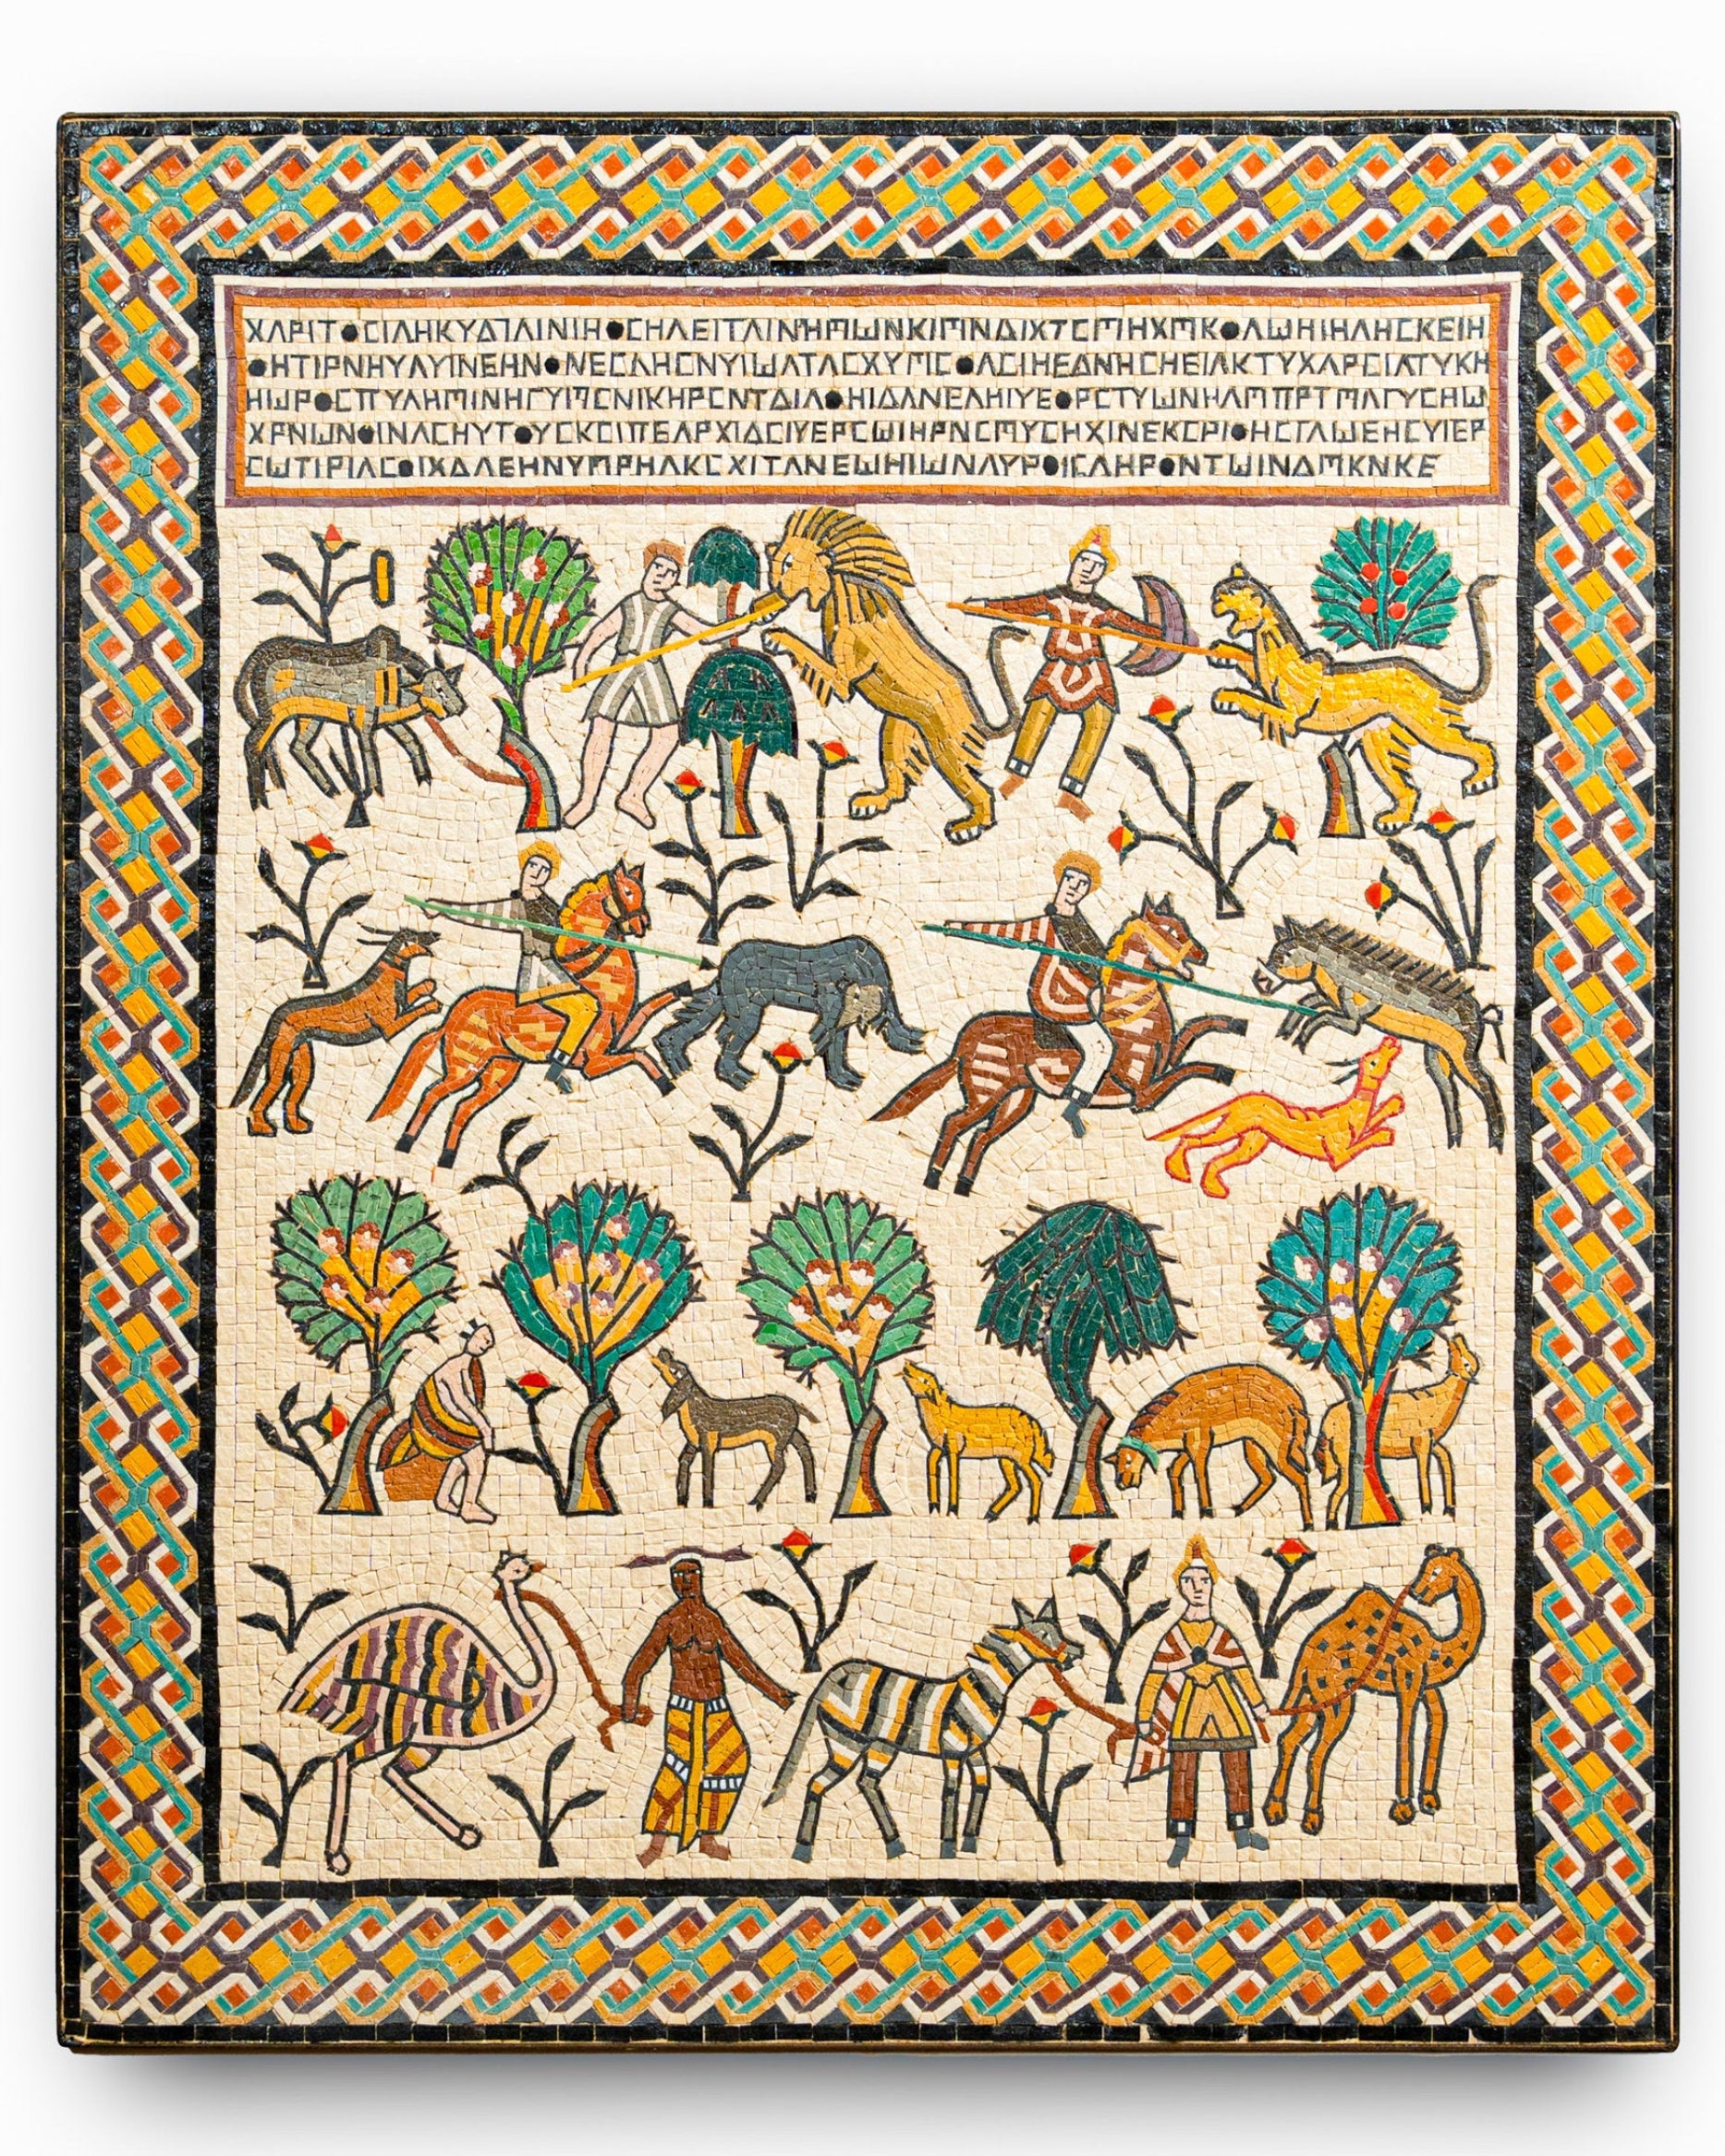 ΧΑΡΙΤ●CΙΛΗΚΥΔΠΑΙΝΙΗ●CΗΛΕΙΤΛΙΝΉΜΩΝΚΙΜΝΔΙΧΤCΜΗΧΜΚ●ΛΩΗΙΗΛΗCΚΕΙΗ
●ΗΤΙΡΝΗΥΛΥΙΝΕΗΝ●ΝΕCΔΗCΝΥΙΩΑΤΑCΧΥΜC●ΑCΙΗΕΔΝΗCΗΕΙΛΚΤΥΧΑΡCΙΑΤΥΚΗ
ΗΩΡ●CΠΥΛΗΜΙΝΗΓΥΜCΝΙΚΗΡCΝΤΔΙΛ●ΗΙΔΛΝΕΛΗΙΥΕ●ΡCΤΥΩΝΗΛΜΠΡΤΜΛΓΥCΗΩ
ΧΡΝΙΩΝ●ΙΝΛCΗΥΤ●ΥCΚCΙΠΕΔΡΧΙΔCΙΥΕΡCΩΙΗΡΝCΜΥCΗΧΙΝΕΚCΡΙ●ΗCΓΛΩΕΗCΥΙΕΡ
CΩΤΙΡΙΛC●ΙΧΔΛΕΗΝΥΜΡΗΛΚCΧΙΤΛΝΕΩΗΙΩΝΛΥΡ●ΙCΛΗΡ●ΝΤΩΙΝΔΜΚΝΚΕ